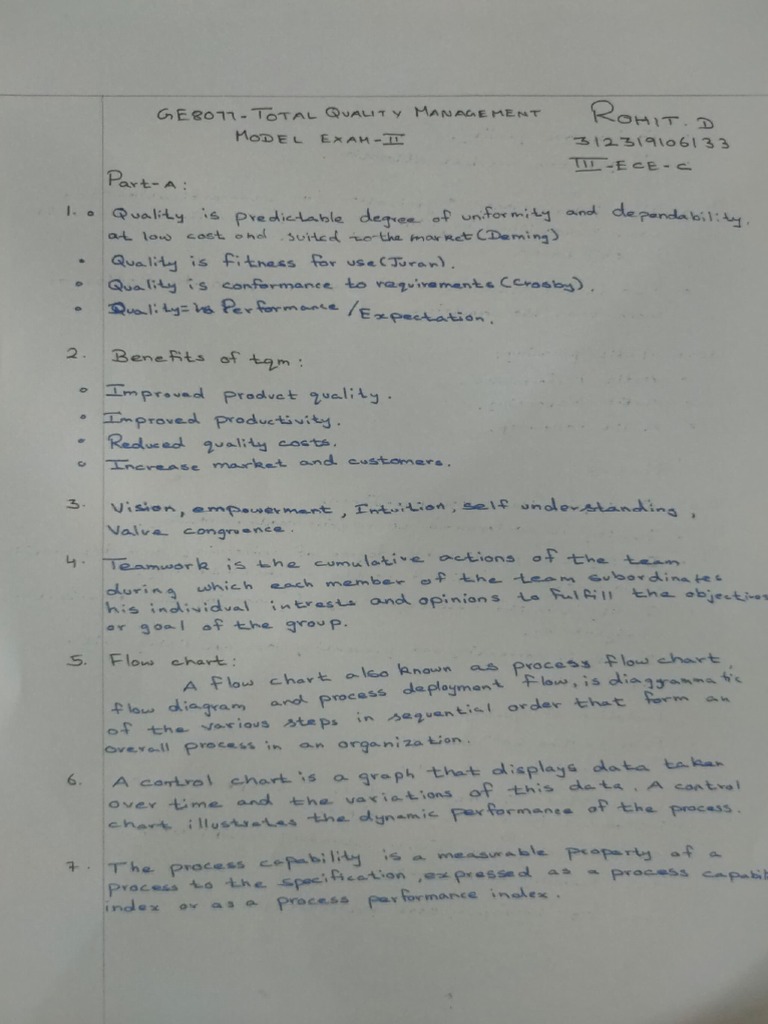 GE8077-TOTAL QUALITY MANAGEMENT
MODEL EXAM-II
ROHIT. D
312319106133
III-ECE-C
Part-A:
1. • Quality is predictable degree of uniformity and dependability,
at low cost and suited to the market (Deming)
• Quality is fitness for use (Juran).
• Quality is conformance to requirements (Crosby).
• Quality = Performance / Expectation.
2. Benefits of tqm:
• Improved product quality.
• Improved productivity.
• Reduced quality costs.
• Increase market and customers.
3. Vision, empowerment, Intuition, self understanding,
Value congruence.
4. Teamwork is the cumulative actions of the team
during which each member of the team subordinates
his individual intrests and opinions to fulfill the objectives
or goal of the group.
5. Flow chart:
A flow chart also known as process flow chart,
flow diagram and process deployment flow, is diaggrammatic
of the various steps in sequential order that form an
overall process in an organization.
6. A control chart is a graph that displays data taken
over time and the variations of this data. A control
chart illustrates the dynamic performance of the process.
7. The process capability is a measurable property of a
process to the specification, expressed as a process capabil
index or as a process performance index.